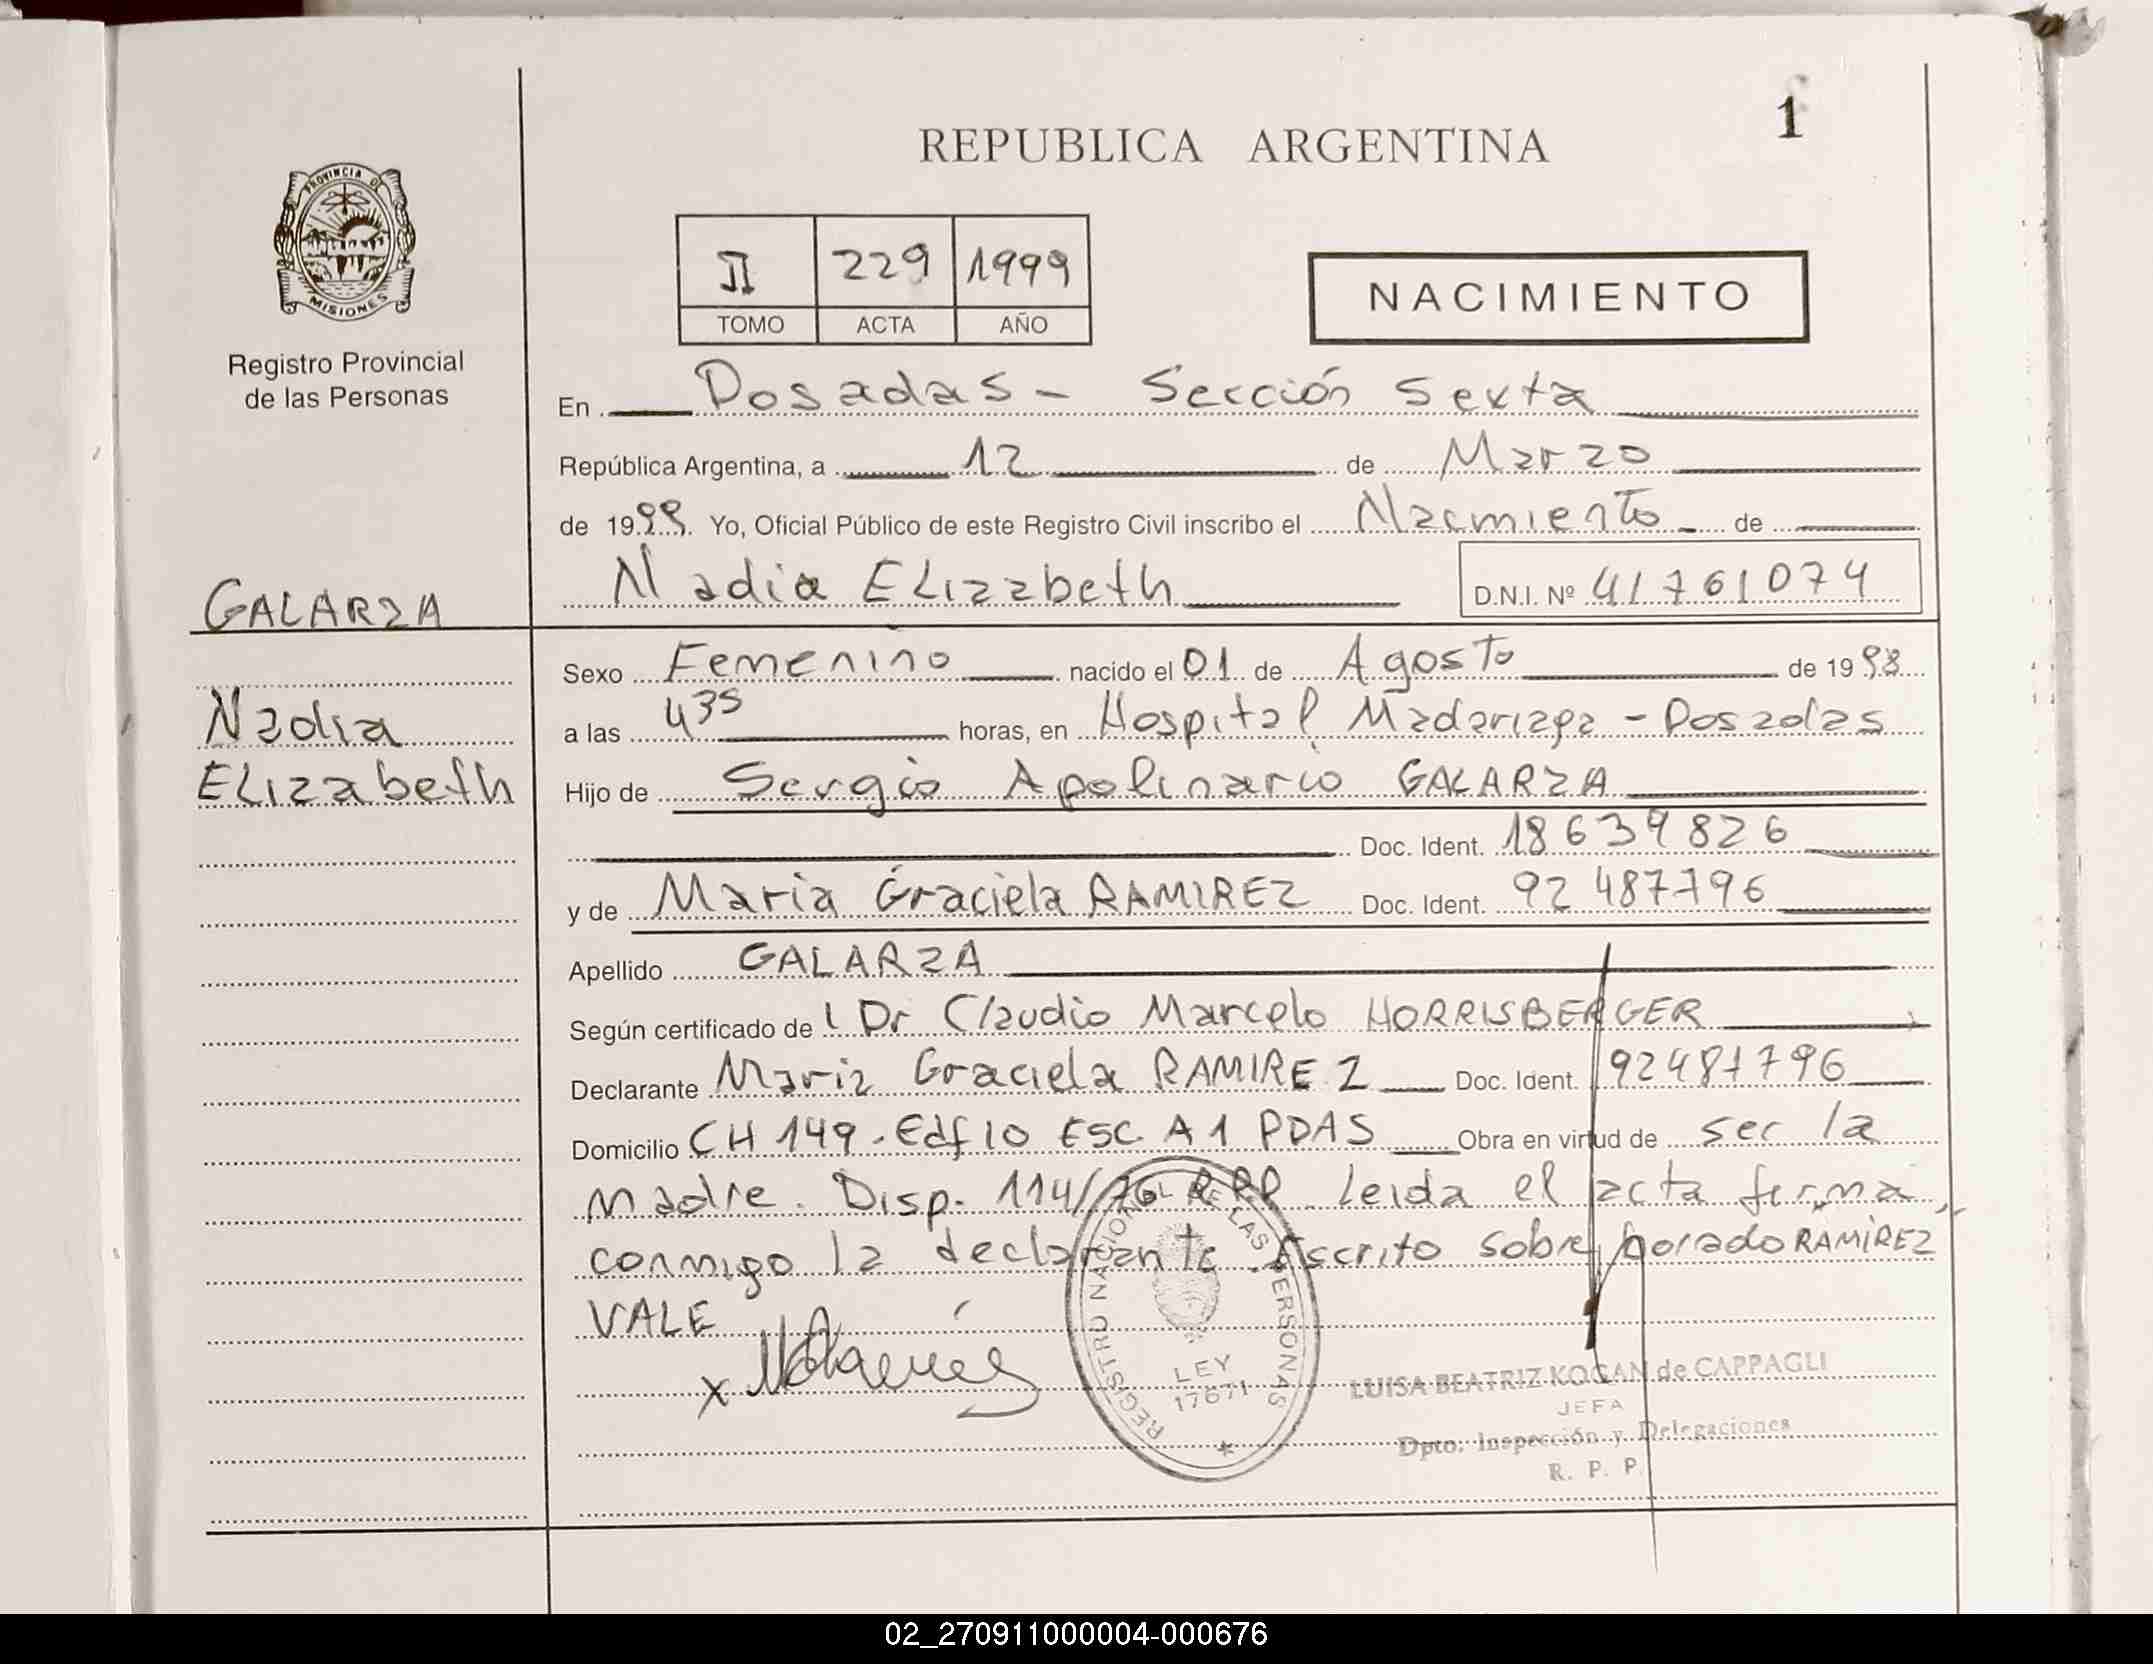 1
REPUBLICA ARGENTINA
PROVINCIA DE
MISIONES
Registro Provincial
de las Personas
II 229 1999
TOMO ACTA AÑO
NACIMIENTO
En Posadas - Sección Sexta
República Argentina, a 12 de Marzo
de 1999. Yo, Oficial Público de este Registro Civil inscribo el Nacimiento de
Nadia ELizabeth D.N.I. Nº 41761074
GALARZA
Nadia
ELizabeth
Sexo Femenino nacido el 01 de Agosto de 1998
a las 435 horas, en Hospital Madariaga - Posadas
Hijo de Sergio Apolinario GALARZA
Doc. Ident. 18639826
y de Maria Graciela RAMIREZ Doc. Ident. 92487796
Apellido GALARZA
Según certificado de l Dr Claudio Marcelo HORRISBERGER
Declarante Maria Graciela RAMIREZ Doc. Ident. 92487796
Domicilio CH 149. Edf 10 ESC A 1 PDAS Obra en virtud de ser la
Madre. Disp. 114/76 RPP Leida el acta firma,
conmigo la declarante. Escrito sobre borado RAMIREZ
VALE
x
REGISTRO NACIONAL DE LAS PERSONAS
LEY
17671
LUISA BEATRIZ KOGAN de CAPPAGLI
JEFA
Dpto. Inspección y Delegaciones
R. P. P.
02_270911000004-000676